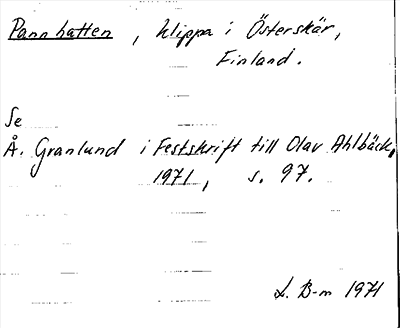 Pannhatten, klippa i Österskär,
Finland.
Se
Å. Granlund i Festskrift till Olav Ahlbäck,
1971, s. 97.
L. B-m 1971